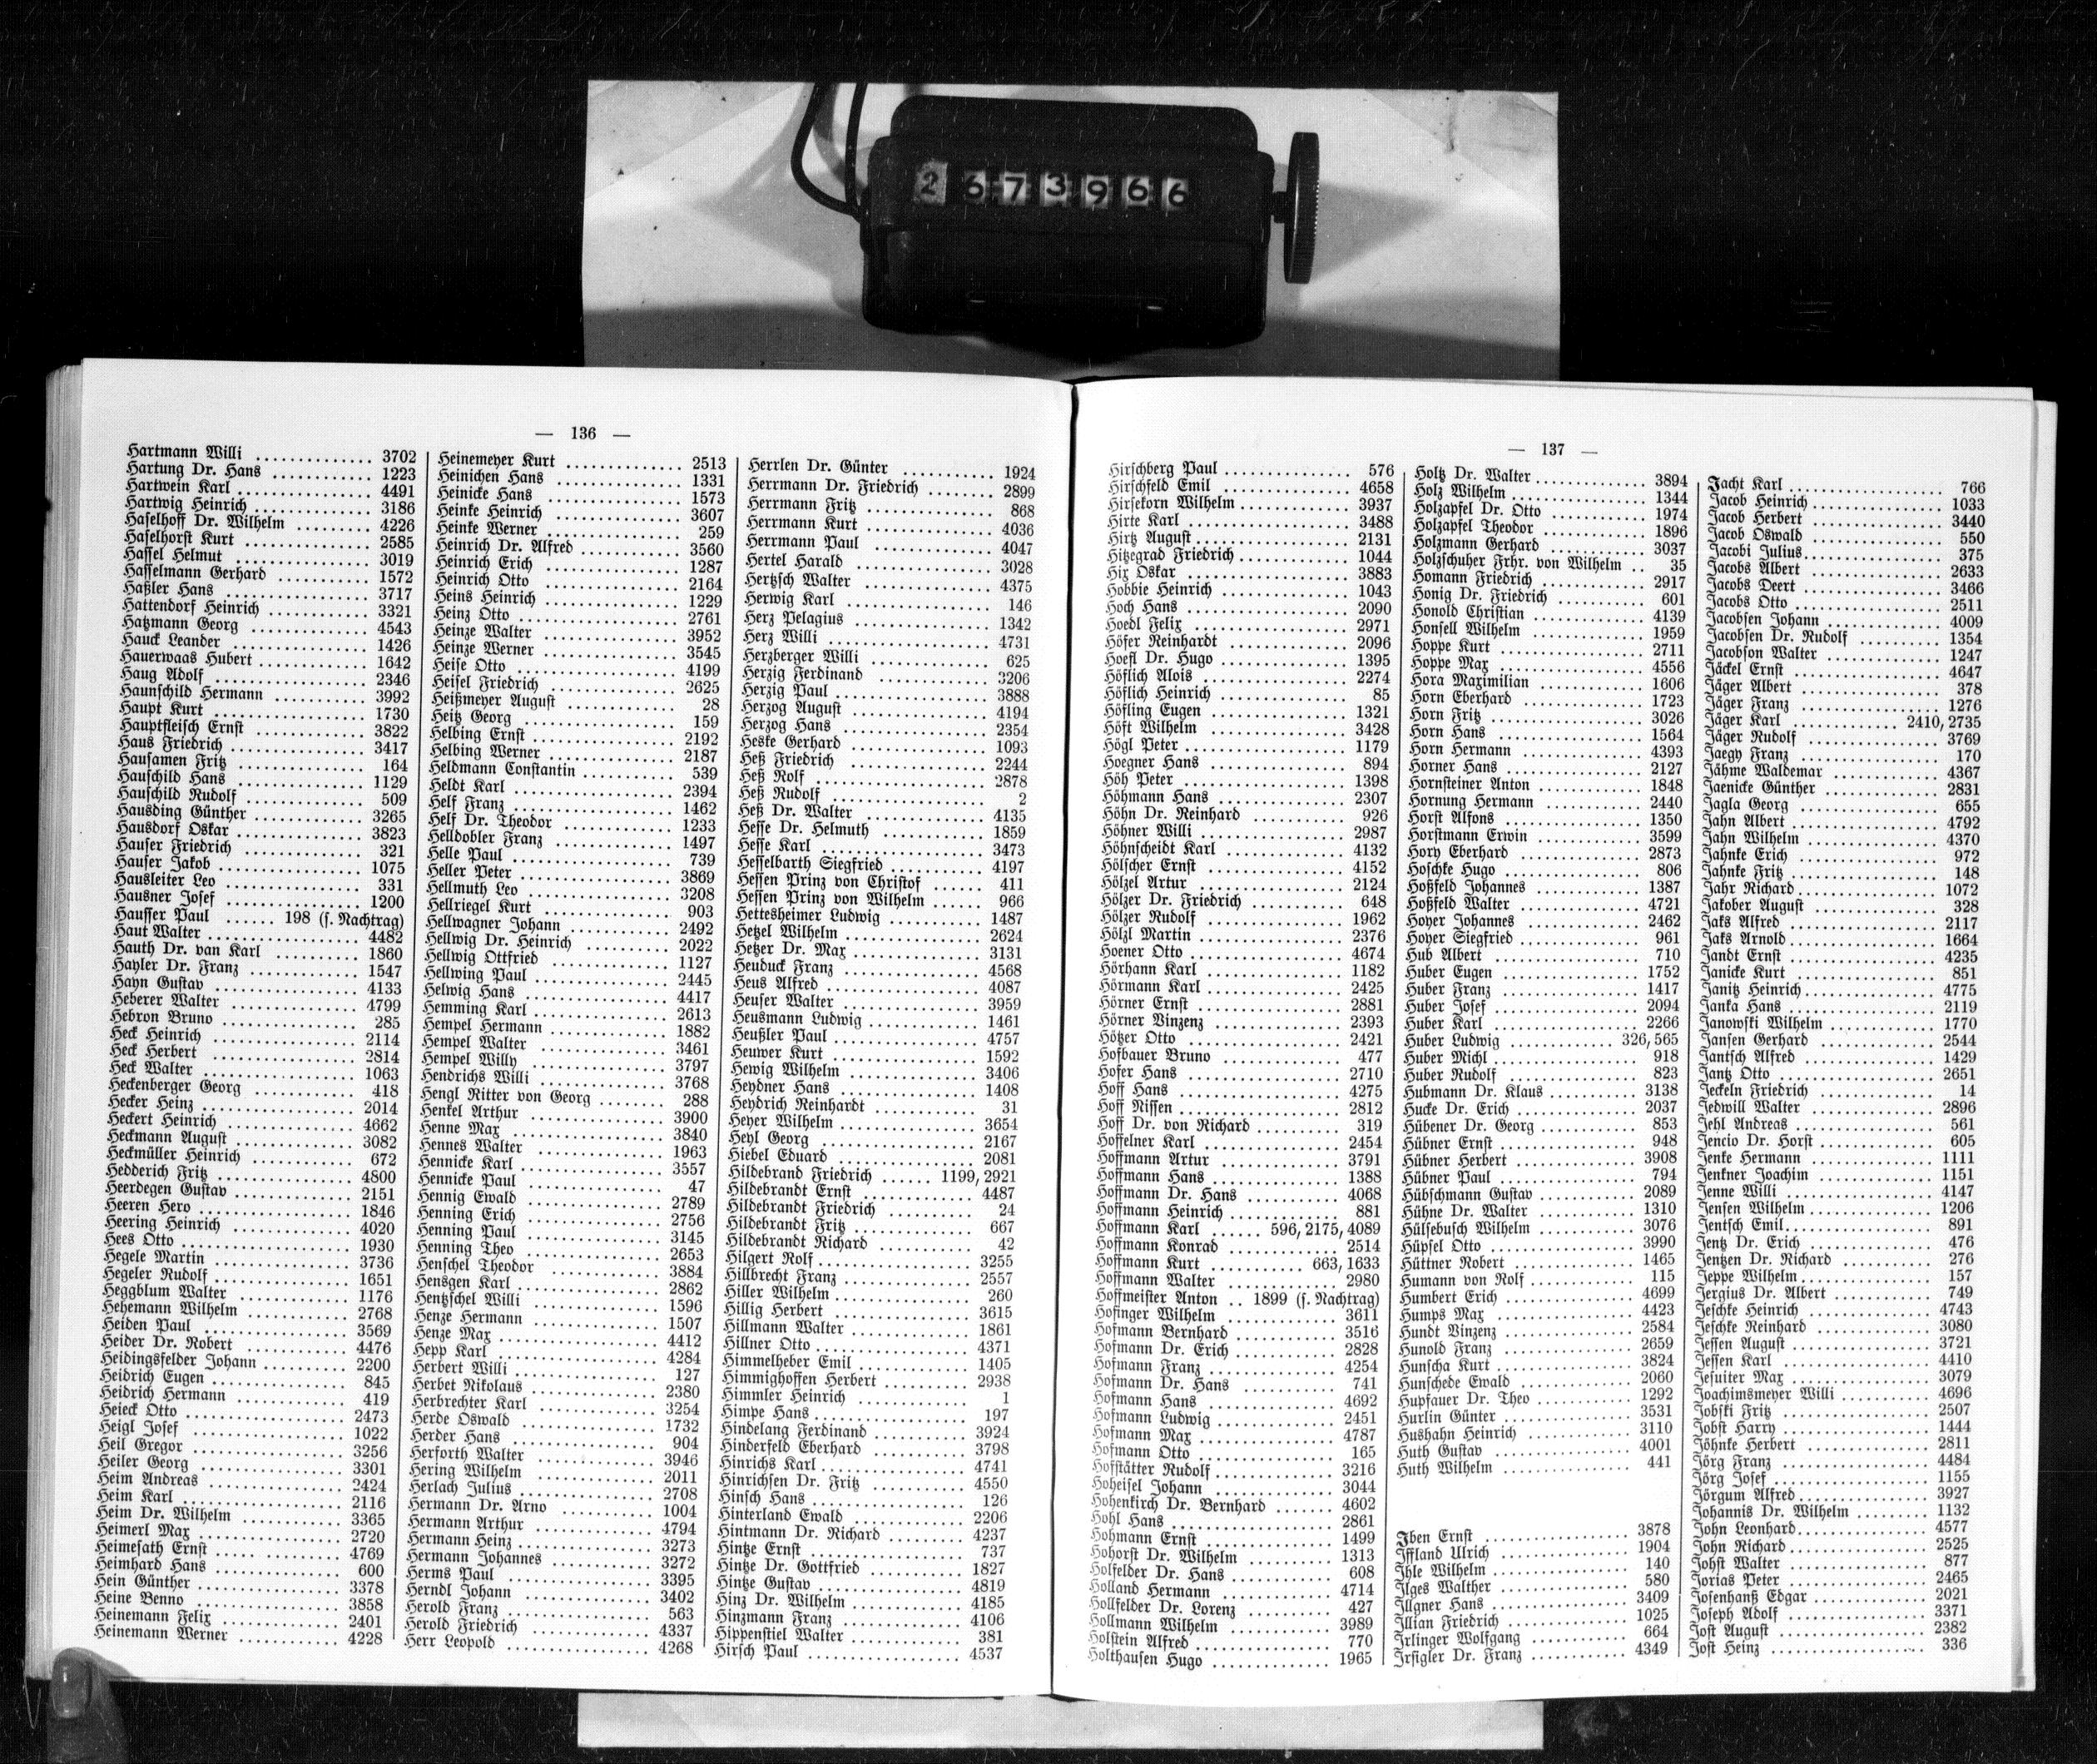 2673966
— 136 —
Hartmann Willi .............. 3702
Hartung Dr. Hans ............ 1223
Hartwein Karl ................ 4491
Hartwig Heinrich ............. 3186
Haselhoff Dr. Wilhelm ........ 4226
Haselhorst Kurt .............. 2585
Hassel Helmut ................ 3019
Hasselmann Gerhard ........... 1572
Haßler Hans .................. 3717
Hattendorf Heinrich .......... 3321
Hatzmann Georg ............... 4543
Hauck Leander ................ 1426
Hauerwaas Hubert ............. 1642
Haug Adolf ................... 2346
Haunschild Hermann ........... 3992
Haupt Kurt ................... 1730
Hauptfleisch Ernst ........... 3822
Haus Friedrich ............... 3417
Hausamen Fritz ............... 164
Hauschild Hans ............... 1129
Hauschild Rudolf ............. 509
Hausding Günther ............. 3265
Hausdorf Oskar ............... 3823
Hauser Friedrich ............. 321
Hauser Jakob ................. 1075
Hausleiter Leo ............... 331
Hausner Josef ................ 1200
Hausser Paul ...... 198 (s. Nachtrag)
Haut Walter .................. 4482
Hauth Dr. van Karl ........... 1860
Hayler Dr. Franz ............. 1547
Hayn Gustav .................. 4133
Heberer Walter ............... 4799
Hebron Bruno ................. 285
Heck Heinrich ................ 2114
Heck Herbert ................. 2814
Heck Walter .................. 1063
Heckenberger Georg ........... 418
Hecker Heinz ................. 2014
Heckert Heinrich ............. 4662
Heckmann August .............. 3082
Heckmüller Heinrich .......... 672
Hedderich Fritz .............. 4800
Heerdegen Gustav ............. 2151
Heeren Hero .................. 1846
Heering Heinrich ............. 4020
Hees Otto .................... 1930
Hegele Martin ................ 3736
Hegeler Rudolf ............... 1651
Heggblum Walter .............. 1176
Hehemann Wilhelm ............. 2768
Heiden Paul .................. 3569
Heider Dr. Robert ............ 4476
Heidingsfelder Johann ........ 2200
Heidrich Eugen ............... 845
Heidrich Hermann ............. 419
Heieck Otto .................. 2473
Heigl Josef .................. 1022
Heil Gregor .................. 3256
Heiler Georg ................. 3301
Heim Andreas ................. 2424
Heim Karl .................... 2116
Heim Dr. Wilhelm ............. 3365
Heimerl Max .................. 2720
Heimesath Ernst .............. 4769
Heimhard Hans ................ 600
Hein Günther ................. 3378
Heine Benno .................. 3858
Heinemann Felix .............. 2401
Heinemann Werner ............. 4228
Heinemeyer Kurt .............. 2513
Heinichen Hans ............... 1331
Heinicke Hans ................ 1573
Heinke Heinrich .............. 3607
Heinke Werner ................ 259
Heinrich Dr. Alfred .......... 3560
Heinrich Erich ............... 1287
Heinrich Otto ................ 2164
Heins Heinrich ............... 1229
Heinz Otto ................... 2761
Heinze Walter ................ 3952
Heinze Werner ................ 3545
Heise Otto ................... 4199
Heisel Friedrich ............. 2625
Heißmeyer August ............. 28
Heitz Georg .................. 159
Helbing Ernst ................ 2192
Helbing Werner ............... 2187
Heldmann Constantin .......... 539
Heldt Karl ................... 2394
Helf Franz ................... 1462
Helf Dr. Theodor ............. 1233
Helldobler Franz ............. 1497
Helle Paul ................... 739
Heller Peter ................. 3869
Hellmuth Leo ................. 3208
Hellriegel Kurt .............. 903
Hellwagner Johann ............ 2492
Hellwig Dr. Heinrich ......... 2022
Hellwig Ottfried ............. 1127
Hellwing Paul ................ 2445
Helwig Hans .................. 4417
Hemming Karl ................. 2613
Hempel Hermann ............... 1882
Hempel Walter ................ 3461
Hempel Willy ................. 3797
Hendrichs Willi .............. 3768
Hengl Ritter von Georg ....... 288
Henkel Arthur ................ 3900
Henne Max .................... 3840
Hennes Walter ................ 1963
Hennicke Karl ................ 3557
Hennicke Paul ................ 47
Hennig Ewald ................. 2789
Henning Erich ................ 2756
Henning Paul ................. 3145
Henning Theo ................. 2653
Henschel Theodor ............. 3884
Hensgen Karl ................. 2862
Hentzschel Willi ............. 1596
Henze Hermann ................ 1507
Henze Max .................... 4412
Hepp Karl .................... 4284
Herbert Willi ................ 127
Herbet Nikolaus .............. 2380
Herbrechter Karl ............. 3254
Herde Oswald ................. 1732
Herder Hans .................. 904
Herforth Walter .............. 3946
Hering Wilhelm ............... 2011
Herlach Julius ............... 2708
Hermann Dr. Arno ............. 1004
Hermann Arthur ............... 4794
Hermann Heinz ................ 3273
Hermann Johannes ............. 3272
Herms Paul ................... 3395
Herndl Johann ................ 3402
Herold Franz ................. 563
Herold Friedrich ............. 4337
Herr Leopold ................. 4268
Herrlen Dr. Günter ........... 1924
Herrmann Dr. Friedrich ....... 2899
Herrmann Fritz ............... 868
Herrmann Kurt ................ 4036
Herrmann Paul ................ 4047
Hertel Harald ................ 3028
Hertzsch Walter .............. 4375
Herwig Karl .................. 146
Herz Pelagius ................ 1342
Herz Willi ................... 4731
Herzberger Willi ............. 625
Herzig Ferdinand ............. 3206
Herzig Paul .................. 3888
Herzog August ................ 4194
Herzog Hans .................. 2354
Heske Gerhard ................ 1093
Heß Friedrich ................ 2244
Heß Rolf ..................... 2878
Heß Rudolf ................... 2
Heß Dr. Walter ............... 4135
Hesse Dr. Helmuth ............ 1859
Hesse Karl ................... 3473
Hesselbarth Siegfried ........ 4197
Hessen Prinz von Christof .... 411
Hessen Prinz von Wilhelm ..... 966
Hettesheimer Ludwig .......... 1487
Hetzel Wilhelm ............... 2624
Hetzer Dr. Max ............... 3131
Heuduck Franz ................ 4568
Heus Alfred .................. 4087
Heuser Walter ................ 3959
Heusmann Ludwig .............. 1461
Heußler Paul ................. 4757
Heuwer Kurt .................. 1592
Hewig Wilhelm ................ 3406
Heydner Hans ................. 1408
Heydrich Reinhardt ........... 31
Heyer Wilhelm ................ 3654
Heyl Georg ................... 2167
Hiebel Eduard ................ 2081
Hildebrand Friedrich ...... 1199, 2921
Hildebrandt Ernst ............ 4487
Hildebrandt Friedrich ........ 24
Hildebrandt Fritz ............ 667
Hildebrandt Richard .......... 42
Hilgert Rolf ................. 3255
Hillbrecht Franz ............. 2557
Hiller Wilhelm ............... 260
Hillig Herbert ............... 3615
Hillmann Walter .............. 1861
Hillner Otto ................. 4371
Himmelheber Emil ............. 1405
Himmighoffen Herbert ......... 2938
Himmler Heinrich ............. 1
Himpe Hans ................... 197
Hindelang Ferdinand .......... 3924
Hinderfeld Eberhard .......... 3798
Hinrichs Karl ................ 4741
Hinrichsen Dr. Fritz ......... 4550
Hinsch Hans .................. 126
Hinterland Ewald ............. 2206
Hintmann Dr. Richard ......... 4237
Hintze Ernst ................. 737
Hintze Dr. Gottfried ......... 1827
Hintze Gustav ................ 4819
Hinz Dr. Wilhelm ............. 4185
Hinzmann Franz ............... 4106
Hippenstiel Walter ........... 381
Hirsch Paul .................. 4537
— 137 —
Hirschberg Paul .............. 576
Hirschfeld Emil .............. 4658
Hirsekorn Wilhelm ............ 3937
Hirte Karl ................... 3488
Hirtz August ................. 2131
Hitzegrad Friedrich .......... 1044
Hix Oskar .................... 3883
Hobbie Heinrich .............. 1043
Hoch Hans .................... 2090
Hoedl Felix .................. 2971
Höfer Reinhardt .............. 2096
Hoefl Dr. Hugo ............... 1395
Höflich Alois ................ 2274
Höflich Heinrich ............. 85
Höfling Eugen ................ 1321
Höft Wilhelm ................. 3428
Högl Peter ................... 1179
Hoegner Hans ................. 894
Höh Peter .................... 1398
Höhmann Hans ................. 2307
Höhn Dr. Reinhard ............ 926
Höhner Willi ................. 2987
Höhnscheidt Karl ............. 4132
Hölscher Ernst ............... 4152
Hölzel Artur ................. 2124
Hölzer Dr. Friedrich ......... 648
Hölzer Rudolf ................ 1962
Hölzl Martin ................. 2376
Hoener Otto .................. 4674
Hörhann Karl ................. 1182
Hörmann Karl ................. 2425
Hörner Ernst ................. 2881
Hörner Vinzenz ............... 2393
Hötzer Otto .................. 2421
Hofbauer Bruno ............... 477
Hofer Hans ................... 2710
Hoff Hans .................... 4275
Hoff Nissen .................. 2812
Hoff Dr. von Richard ......... 319
Hoffelner Karl ............... 2454
Hoffmann Artur ............... 3791
Hoffmann Hans ................ 1388
Hoffmann Dr. Hans ............ 4068
Hoffmann Heinrich ............ 881
Hoffmann Karl ...... 596, 2175, 4089
Hoffmann Konrad .............. 2514
Hoffmann Kurt .......... 663, 1633
Hoffmann Walter .............. 2980
Hoffmeister Anton .. 1899 (s. Nachtrag)
Hofinger Wilhelm ............. 3611
Hofmann Bernhard ............. 3516
Hofmann Dr. Erich ............ 2828
Hofmann Franz ................ 4254
Hofmann Dr. Hans ............. 741
Hofmann Hans ................. 4692
Hofmann Ludwig ............... 2451
Hofmann Max .................. 4787
Hofmann Otto ................. 165
Hofstätter Rudolf ............ 3216
Hoheisel Johann .............. 3044
Hohenkirch Dr. Bernhard ...... 4602
Hohl Hans .................... 2861
Hohmann Ernst ................ 1499
Hohorst Dr. Wilhelm .......... 1313
Holfelder Dr. Hans ........... 608
Holland Hermann .............. 4714
Hollfelder Dr. Lorenz ........ 427
Hollmann Wilhelm ............. 3989
Holstein Alfred .............. 770
Holthausen Hugo .............. 1965
Holtz Dr. Walter ............. 3894
Holz Wilhelm ................. 1344
Holzapfel Dr. Otto ........... 1974
Holzapfel Theodor ............ 1896
Holzmann Gerhard ............. 3037
Holzschuher Frhr. von Wilhelm .. 35
Homann Friedrich ............. 2917
Honig Dr. Friedrich .......... 601
Honold Christian ............. 4139
Honsell Wilhelm .............. 1959
Hoppe Kurt ................... 2711
Hoppe Max .................... 4556
Hora Maximilian .............. 1606
Horn Eberhard ................ 1723
Horn Fritz ................... 3026
Horn Hans .................... 1564
Horn Hermann ................. 4393
Horner Hans .................. 2127
Hornsteiner Anton ............ 1848
Hornung Hermann .............. 2440
Horst Alfons ................. 1350
Horstmann Erwin .............. 3599
Hory Eberhard ................ 2873
Hoschke Hugo ................. 806
Hoßfeld Johannes ............. 1387
Hoßfeld Walter ............... 4721
Hoyer Johannes ............... 2462
Hoyer Siegfried .............. 961
Hub Albert ................... 710
Huber Eugen .................. 1752
Huber Franz .................. 1417
Huber Josef .................. 2094
Huber Karl ................... 2266
Huber Ludwig ............ 326, 565
Huber Michl .................. 918
Huber Rudolf ................. 823
Hubmann Dr. Klaus ............ 3138
Hucke Dr. Erich .............. 2037
Hübener Dr. Georg ............ 853
Hübner Ernst ................. 948
Hübner Herbert ............... 3908
Hübner Paul .................. 794
Hübschmann Gustav ............ 2089
Hühne Dr. Walter ............. 1310
Hülsebusch Wilhelm ........... 3076
Hüpsel Otto .................. 3990
Hüttner Robert ............... 1465
Humann von Rolf .............. 115
Humbert Erich ................ 4699
Humps Max .................... 4423
Hundt Vinzenz ................ 2584
Hunold Franz ................. 2659
Hunscha Kurt ................. 3824
Hunschede Ewald .............. 2060
Hupfauer Dr. Theo ............ 1292
Hurlin Günter ................ 3531
Hushahn Heinrich ............. 3110
Huth Gustav .................. 4001
Huth Wilhelm ................. 441
Iben Ernst ................... 3878
Iffland Ulrich ............... 1904
Ihle Wilhelm ................. 140
Ilges Walther ................ 580
Illgner Hans ................. 3409
Illian Friedrich ............. 1025
Irlinger Wolfgang ............ 664
Irsigler Dr. Franz ........... 4349
Jacht Karl ................... 766
Jacob Heinrich ............... 1033
Jacob Herbert ................ 3440
Jacob Oswald ................. 550
Jacobi Julius ................ 375
Jacobs Albert ................ 2633
Jacobs Deert ................. 3466
Jacobs Otto .................. 2511
Jacobsen Johann .............. 4009
Jacobsen Dr. Rudolf .......... 1354
Jacobson Walter .............. 1247
Jäckel Ernst ................. 4647
Jäger Albert ................. 378
Jäger Franz .................. 1276
Jäger Karl .............. 2410, 2735
Jäger Rudolf ................. 3769
Jaegy Franz .................. 170
Jähme Waldemar ............... 4367
Jaenicke Günther ............. 2831
Jagla Georg .................. 655
Jahn Albert .................. 4792
Jahn Wilhelm ................. 4370
Jahnke Erich ................. 972
Jahnke Fritz ................. 148
Jahr Richard ................. 1072
Jakober August ............... 328
Jaks Alfred .................. 2117
Jaks Arnold .................. 1664
Jandt Ernst .................. 4235
Janicke Kurt ................. 851
Janitz Heinrich .............. 4775
Janka Hans ................... 2119
Janowski Wilhelm ............. 1770
Jansen Gerhard ............... 2544
Jantsch Alfred ............... 1429
Jantz Otto ................... 2651
Jeckeln Friedrich ............ 14
Jedwill Walter ............... 2896
Jehl Andreas ................. 561
Jencio Dr. Horst ............. 605
Jenke Hermann ................ 1111
Jenkner Joachim .............. 1151
Jenne Willi .................. 4147
Jensen Wilhelm ............... 1206
Jentsch Emil ................. 891
Jentz Dr. Erich .............. 476
Jentzen Dr. Richard .......... 276
Jeppe Wilhelm ................ 157
Jergius Dr. Albert ........... 749
Jeschke Heinrich ............. 4743
Jeschke Reinhard ............. 3080
Jessen August ................ 3721
Jessen Karl .................. 4410
Jesuiter Max ................. 3079
Joachimsmeyer Willi .......... 4696
Jobski Fritz ................. 2507
Jobst Harry .................. 1444
Jöhnke Herbert ............... 2811
Jörg Franz ................... 4484
Jörg Josef ................... 1155
Jörgum Alfred ................ 3927
Johannis Dr. Wilhelm ......... 1132
John Leonhard ................ 4577
John Richard ................. 2525
Johst Walter ................. 877
Jorias Peter ................. 2465
Josenhanß Edgar .............. 2021
Joseph Adolf ................. 3371
Jost August .................. 2382
Jost Heinz ................... 336